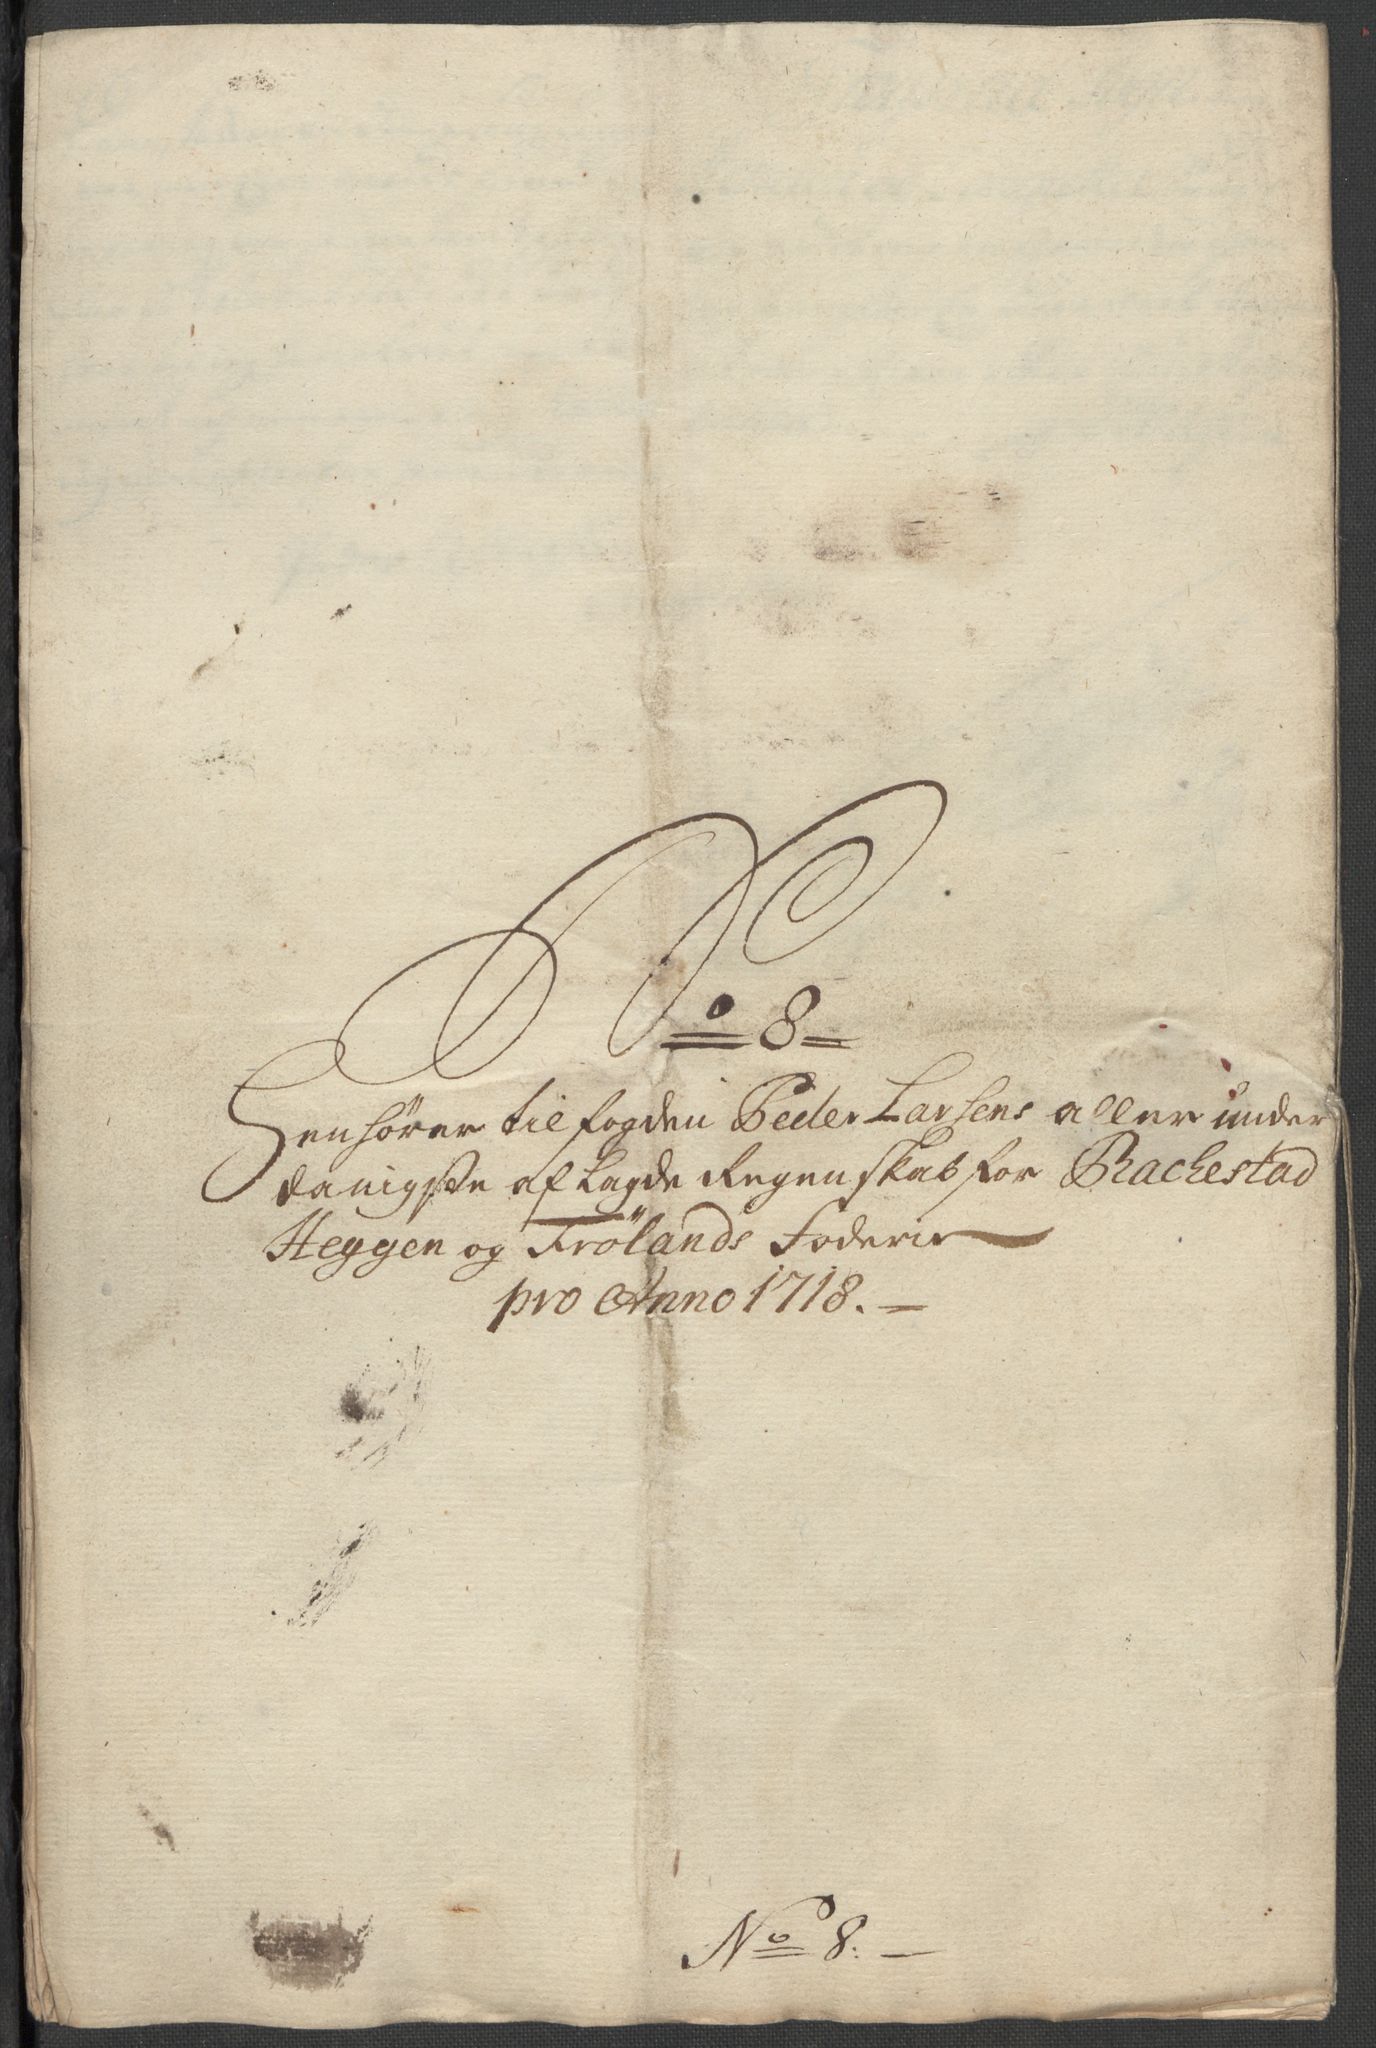 No 8
Henhører til fogden Peder Larsens aller under
danigste aflagde Regenskab for Rachestad
Heggen og Frölands Foderie
pro Anno 1718.
No 8.